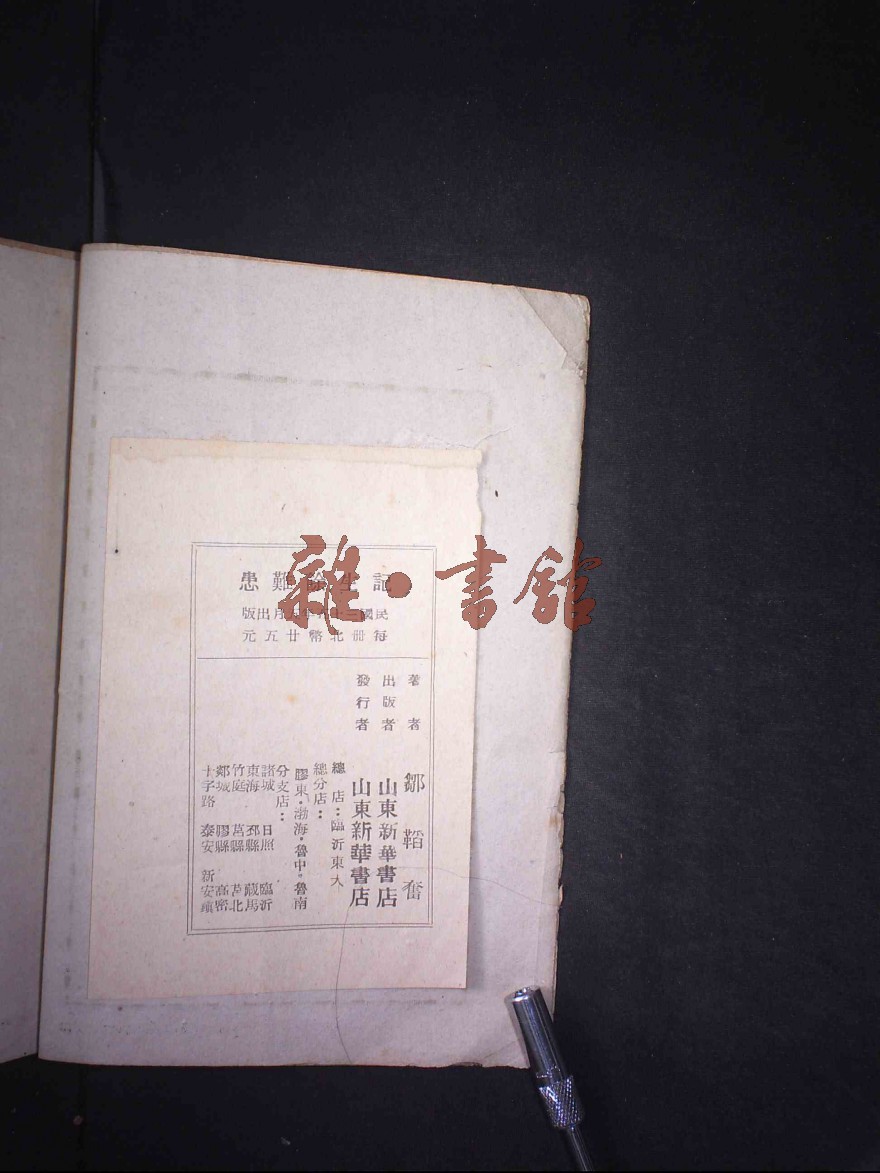 患難餘生記
民國三十年月出版
每冊北幣廿五元
著者 鄒韜奮
出版者 山東新華書店
發行者 山東新華書店
總店：臨沂東大
總分店：
膠東·渤海·魯中·魯南
分支店：
諸城 日照 臨沂
東海 邳縣 藏馬
竹庭 莒縣 莒北
郯城 膠縣 高密
十字路 泰安 新安鎮
雜·書館